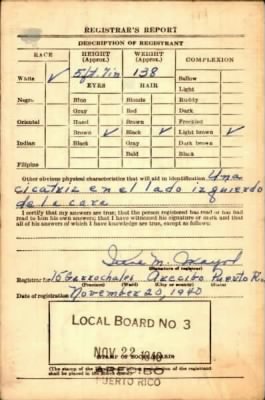 REGISTRAR'S REPORT
DESCRIPTION OF REGISTRANT
RACE HEIGHT (Approx.) WEIGHT (Approx.) COMPLEXION
5 ft. 7 in 138
White ✓ EYES HAIR Sallow
Light
Negro Blue Blonde Ruddy
Gray Red Dark
Oriental Hazel Brown Freckled
Brown ✓ Black ✓ Light brown ✓
Indian Black Gray Dark brown
Bald Black
Filipino
Other obvious physical characteristics that will aid in identification Una
cicatriz en el lado izquierdo
de la cara
I certify that my answers are true; that the person registered has read or has had
read to him his own answers; that I have witnessed his signature or mark and that
all of his answers of which I have knowledge are true, except as follows:
(Signature of registrar)
Registrar for 16 Garrochales Arecibo Puerto R.
(Precinct) (Ward) (City or County) (State)
Date of registration November 20, 1940
LOCAL BOARD No. 3
NOV 22 1940
ARECIBO
PUERTO RICO
(The stamp of the
shall be placed in the above space)